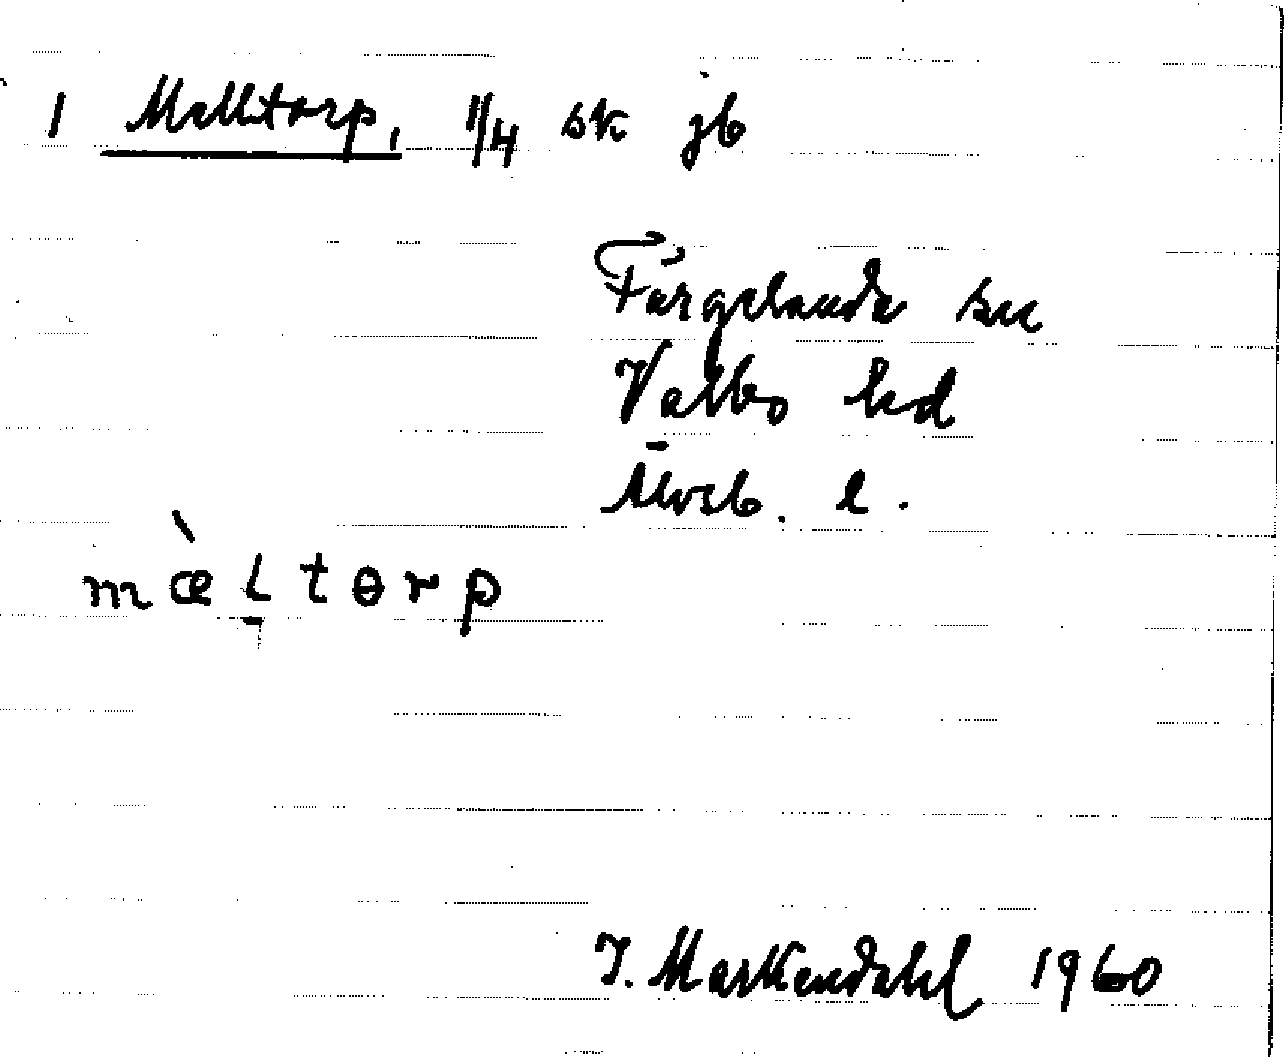 1 Melltorp, 1/4 sk jb
Färgelanda sn
Valbo hd
Älvsb. l.
mæ̀ḷtɵrp
J. Markendahl 1960